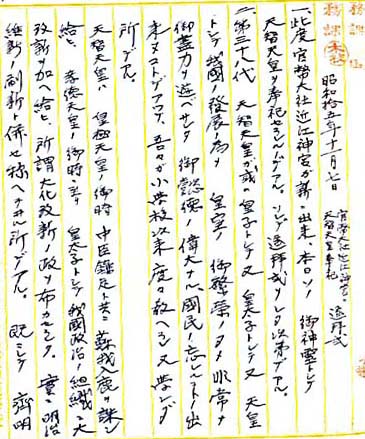 務課
昭和拾五年十一月七日
官幣大社近江神宮
天智天皇奉祀
遙拝式
一、此度官幣大社近江神宮が新ニ出来、本日ソノ御神霊トシテ
天智天皇ヲ奉祀セラレタノデアル。ソレデ遙拝式ヲシタ次第デアル。
二、第三十八代 天智天皇が或ハ皇子トシテ又皇太子トシテ又天皇
トシテ我國ノ發展ノ為メ皇室ノ御繁榮ノタメ非常ナ
御盡力ヲ遊バサレタ御懿德ノ偉大ナル、國民ノ忘レルコト出
来ヌコトデアツテ、吾々が小学校以来度々教ヘラレ又學ンダ
所デアル。
天智天皇ハ 皇極天皇ノ御時 中臣鎌足ト共ニ蘇我入鹿ヲ誅シ
給ヒ、孝德天皇ノ御時ニハ 皇太子トシテ我國政治ノ組織ニ大
改新ヲ加ヘ給ヒ、所謂大化改新ノ政ヲ布カレタ。實ニ明治
維新ノ刷新ト併セ称ヘラルル所デアル。既ニシテ 齊明